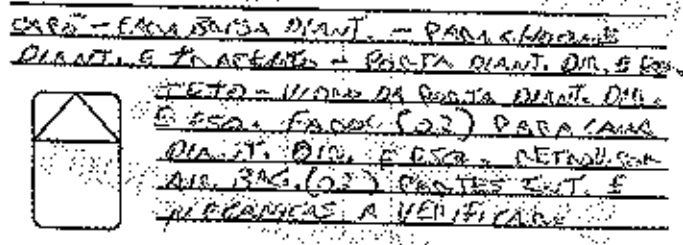 CAPÔ - DIANT. - PARA CHOQUE
DIANT. E TRASEIRO - PORTA DIANT. DIR. E ESQ.
TETO - VIDRO DA PORTA DIANT. DIR.
E ESQ. FAROL (02) PARA LAMA
DIANT. DIR. E ESQ. RETROVISOR
AIR BAG (02) PARTES INT. E
MECANICAS A VERIFICAR